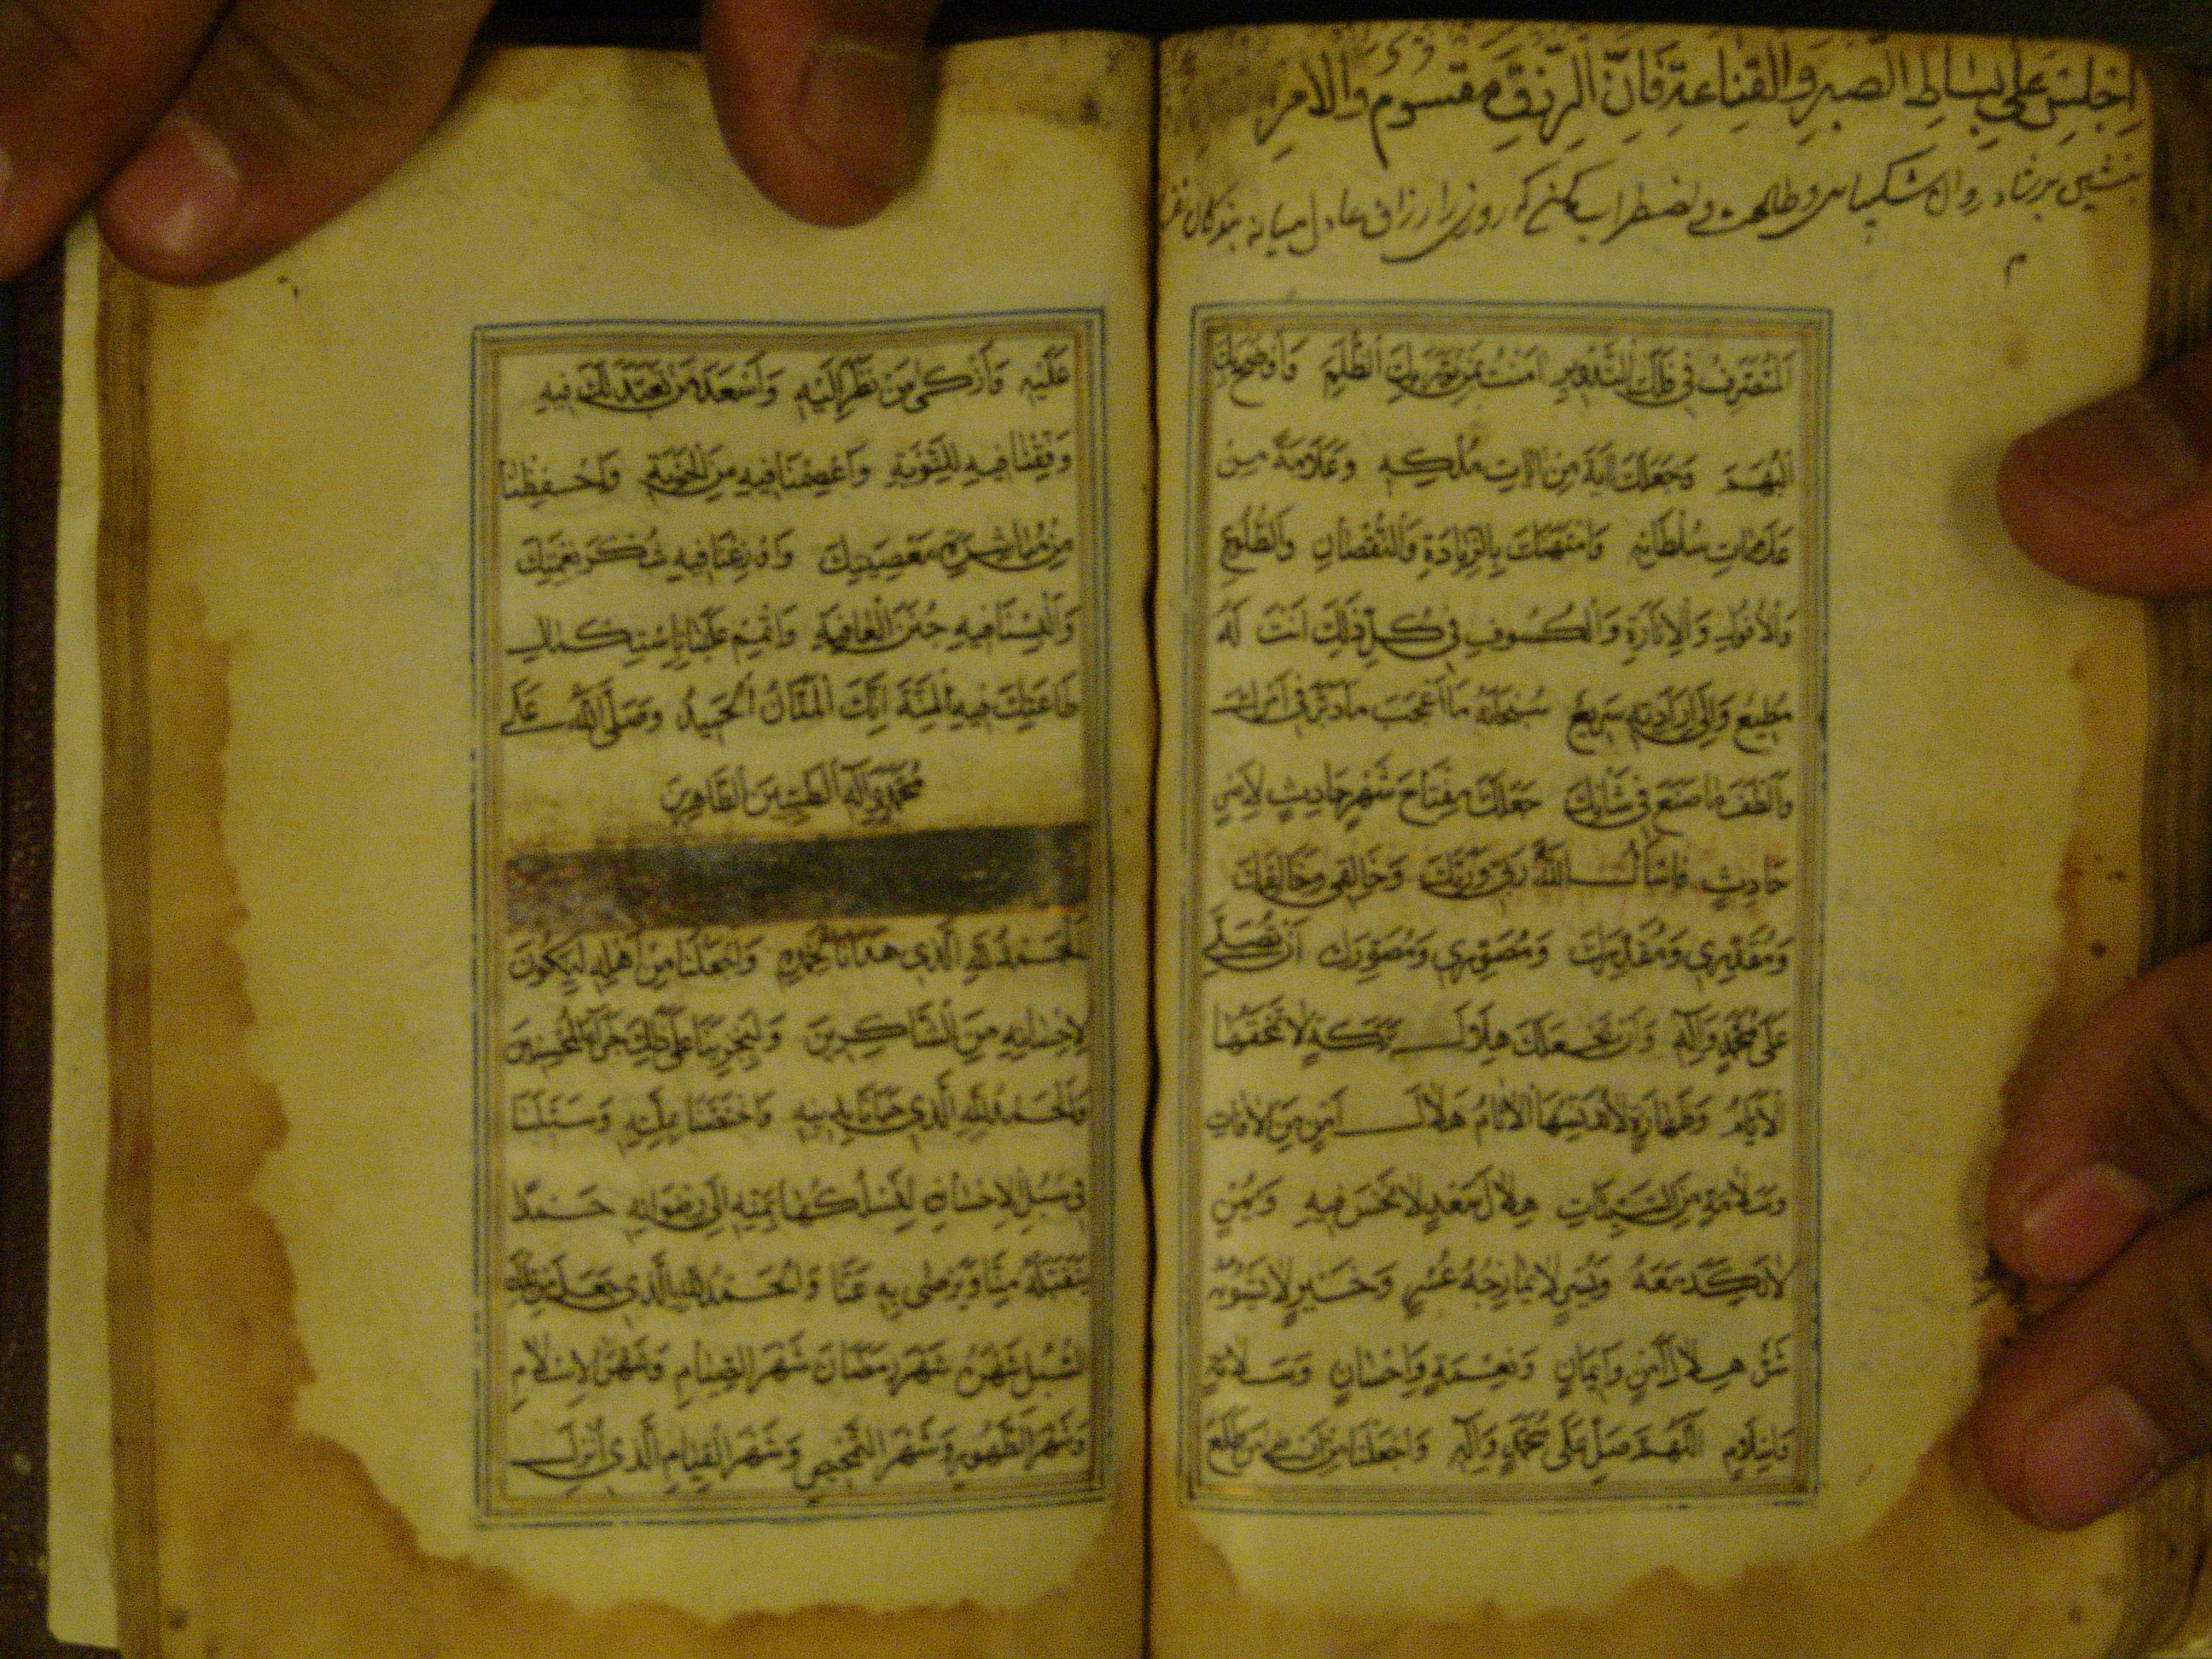 اِجْلِسْ عَلَى بِسَاطِ الصَّبْرِ وَالْقَنَاعَةِ فَاِنَّ الرِّزْقَ مَقْسُومٌ وَالْاَمْرُ
بنشین بر شکیبایی و اضطراب مکن که روزی را رزاق عادل میانه بندکان
م
الْمُتَصَرِّفُ فِي فَلَكِ التَّدْبِيرِ امَنْتُ بِمَنْ نَوَّرَ بِكَ الظُّلَمَ وَاَوْضَحَ بِكَ
الْبُهَمَ وَجَعَلَكَ ايَةً مِنْ ايَاتِ مُلْكِهِ وَعَلَامَةً مِنْ
عَلَامَاتِ سُلْطَانِهِ وَامْتَهَنَكَ بِالزِّيَادَةِ وَالنُّقْصَانِ وَالطُّلُوعِ
وَالْاُفُولِ وَالْاِنَارَةِ وَالْكُسُوفِ فِي كُلِّ ذَلِكَ اَنْتَ لَهُ
مُطِيعٌ وَاِلَى اِرَادَتِهِ سَرِيعٌ سُبْحَانَهُ مَا اَعْجَبَ مَا دَبَّرَ فِي اَمْرِكَ
وَاَلْطَفَ مَا صَنَعَ فِي شَانِكَ جَعَلَكَ مِفْتَاحَ شَهْرٍ حَادِثٍ لِاَمْرٍ
حَادِثٍ فَاَسْاَلُ اللهَ رَبِّي وَرَبَّكَ وَخَالِقِي وَخَالِقَكَ
وَمُقَدِّرِي وَمُقَدِّرَكَ وَمُصَوِّرِي وَمُصَوِّرَكَ اَنْ يُصَلِّيَ
عَلَى مُحَمَّدٍ وَالِهِ وَاَنْ يَجْعَلَكَ هِلَالَ بَرَكَةٍ لَا تَمْحَقُهَا
الْاَيَّامُ وَطَهَارَةٍ لَا تُدَنِّسُهَا الْاثَامُ هِلَالَ اَمْنٍ مِنَ الْافَاتِ
وَسَلَامَةٍ مِنَ السَّيِّئَاتِ هِلَالَ سَعْدٍ لَا نَحْسَ فِيهِ وَيُمْنٍ
لَا نَكَدَ مَعَهُ وَيُسْرٍ لَا يُمَازِجُهُ عُسْرٌ وَخَيْرٍ لَا يَشُوبُهُ
شَرٌّ هِلَالَ اَمْنٍ وَاِيمَانٍ وَنِعْمَةٍ وَاِحْسَانٍ وَسَلَامَةٍ
وَاِسْلَامٍ اَللّهُمَّ صَلِّ عَلَى مُحَمَّدٍ وَالِهِ وَاجْعَلْنَا مِنْ اَرْضَى مَنْ طَلَعَ
عَلَيْهِ وَاَزْكَى مَنْ نَظَرَ اِلَيْهِ وَاَسْعَدَ مَنْ تَعَبَّدَ لَكَ فِيهِ
وَوَفِّقْنَا فِيهِ لِلتَّوْبَةِ وَاعْصِمْنَا فِيهِ مِنَ الْحَوْبَةِ وَاحْفَظْنَا
مِنْ مُبَاشَرَةِ مَعْصِيَتِكَ وَاَوْزِعْنَا فِيهِ شُكْرَ نِعْمَتِكَ
وَاَلْبِسْنَا فِيهِ جُنَنَ الْعَافِيَةِ وَاَتْمِمْ عَلَيْنَا بِاسْتِكْمَالِ
طَاعَتِكَ فِيهِ الْمِنَّةَ اِنَّكَ الْمَنَّانُ الْحَمِيدُ وَصَلَّى اللهُ عَلَى
مُحَمَّدٍ وَالِهِ الطَّيِّبِينَ الطَّاهِرِينَ
اَلْحَمْدُ لِلّهِ الَّذِي هَدَانَا لِحَمْدِهِ وَجَعَلَنَا مِنْ اَهْلِهِ لِنَكُونَ
لِاِحْسَانِهِ مِنَ الشَّاكِرِينَ وَلِيَجْزِيَنَا عَلَى ذَلِكَ جَزَاءَ الْمُحْسِنِينَ
وَالْحَمْدُ لِلّهِ الَّذِي حَبَانَا بِدِينِهِ وَاخْتَصَّنَا بِمِلَّتِهِ وَسَبَّلَنَا
فِي سُبُلِ اِحْسَانِهِ لِنَسْلُكَهَا بِمَنِّهِ اِلَى رِضْوَانِهِ حَمْدًا
يَتَقَبَّلُهُ مِنَّا وَيَرْضَى بِهِ عَنَّا وَالْحَمْدُ لِلّهِ الَّذِي جَعَلَ مِنْ تِلْكَ
السُّبُلِ شَهْرَهُ شَهْرَ رَمَضَانَ شَهْرَ الصِّيَامِ وَشَهْرَ الْاِسْلَامِ
وَشَهْرَ الطَّهُورِ وَشَهْرَ التَّمْحِيصِ وَشَهْرَ الْقِيَامِ الَّذِي اُنْزِلَ